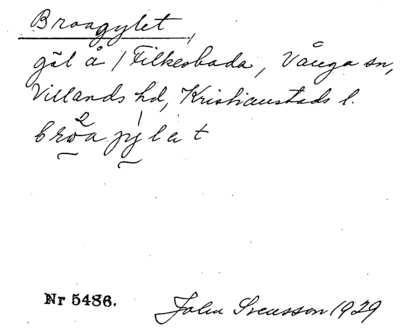 Broagylet,
göl å / Filkesboda, Vånga sn,
Villands hd, Kristianstads l.
broa jylet
Nr 5486.
John Svensson 1929